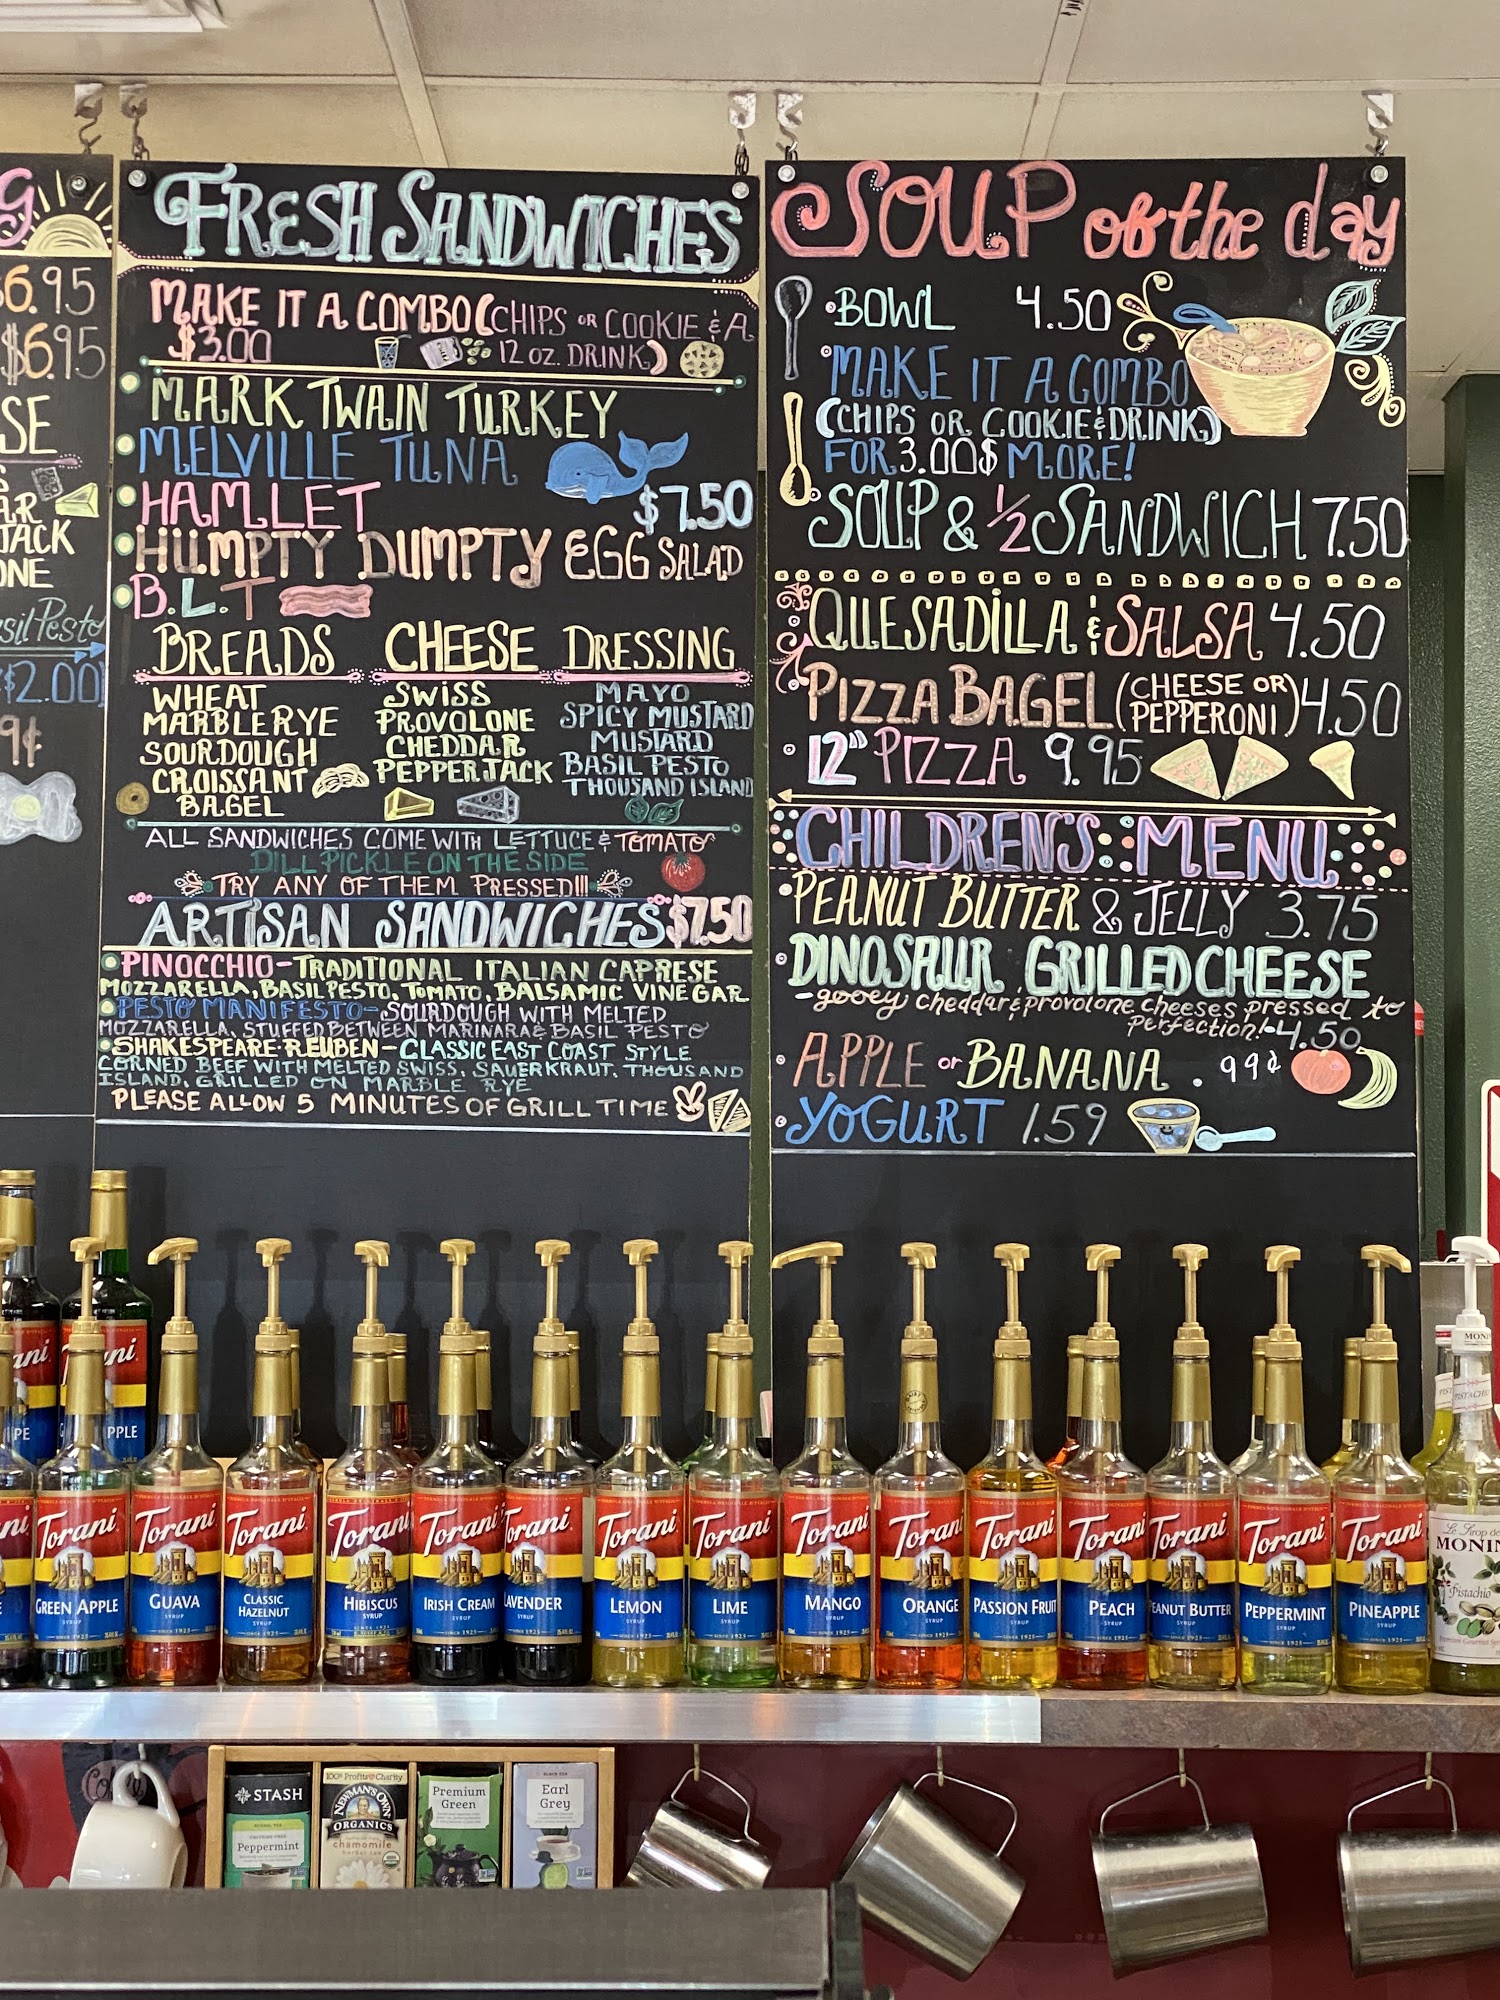 G
6.95
$6.95
SE
AR
JACK
ONE
sil Pesto
$2.00
9¢
FRESH SANDWICHES
MAKE IT A COMBO (CHIPS OR COOKIE & A
$3.00 12 OZ. DRINK)
MARK TWAIN TURKEY
MELVILLE TUNA
HAMLET $7.50
HUMPTY DUMPTY EGG SALAD
B.L.T
BREADS CHEESE DRESSING
WHEAT SWISS MAYO
MARBLE RYE PROVOLONE SPICY MUSTARD
SOURDOUGH CHEDDAR MUSTARD
CROISSANT PEPPER JACK BASIL PESTO
BAGEL THOUSAND ISLAND
ALL SANDWICHES COME WITH LETTUCE & TOMATO
DILL PICKLE ON THE SIDE
TRY ANY OF THEM PRESSED!!!
ARTISAN SANDWICHES $7.50
PINOCCHIO - TRADITIONAL ITALIAN CAPRESE
MOZZARELLA, BASIL PESTO, TOMATO, BALSAMIC VINEGAR
PESTO MANIFESTO - SOURDOUGH WITH MELTED
MOZZARELLA, STUFFED BETWEEN MARINARA & BASIL PESTO
SHAKESPEARE REUBEN - CLASSIC EAST COAST STYLE
CORNED BEEF WITH MELTED SWISS, SAUERKRAUT, THOUSAND
ISLAND, GRILLED ON MARBLE RYE
PLEASE ALLOW 5 MINUTES OF GRILL TIME
SOUP of the day
BOWL 4.50
MAKE IT A COMBO
(CHIPS OR COOKIE & DRINK)
FOR 3.00$ MORE!
SOUP & 1/2 SANDWICH 7.50
QUESADILLA & SALSA 4.50
PIZZA BAGEL (CHEESE OR PEPPERONI) 4.50
12" PIZZA 9.95
CHILDREN'S MENU
PEANUT BUTTER & JELLY 3.75
DINOSAUR GRILLED CHEESE
- gooey cheddar & provolone cheeses pressed to
perfection! 4.50
APPLE or BANANA . 99¢
YOGURT 1.59
ani
PE
ani
PPLE
Torani GREEN APPLE SYRUP
Torani GUAVA SYRUP
Torani CLASSIC HAZELNUT SYRUP
Torani HIBISCUS SYRUP
Torani IRISH CREAM SYRUP
Torani LAVENDER SYRUP
Torani LEMON SYRUP
Torani LIME SYRUP
Torani MANGO SYRUP
Torani ORANGE SYRUP
Torani PASSION FRUIT SYRUP
Torani PEACH SYRUP
Torani PEANUT BUTTER SYRUP
Torani PEPPERMINT SYRUP
Torani PINEAPPLE SYRUP
Le Sirop de
MONIN
Pistachio
STASH
Peppermint
100% Profits to Charity
NEWMAN'S OWN
ORGANICS
chamomile
herbal tea
Premium
Green
BLACK TEA
Earl
Grey